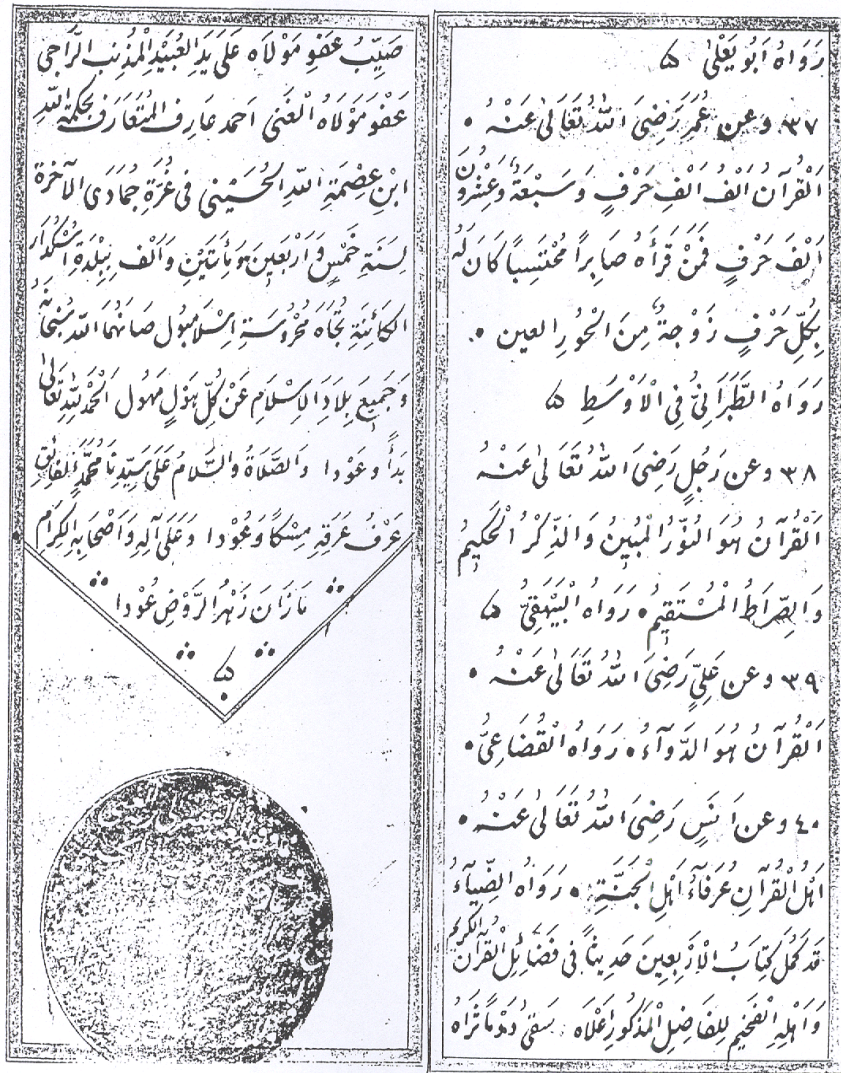 رَوَاهُ اَبُو يَعْلىٰ ۵
٣٧ وعن عُمَرَ رَضِىَ اللهُ تَعَالىٰ عَنْهُ ٠
اَلْقُرآنُ اَلْفُ اَلْفِ حَرْفٍ وَسَبْعَةٌ وَعِشْرُونَ
اَلْفَ حَرْفٍ فَمَنْ قَرَأَهُ صَابِراً مُحْتَسِباً كَانَ لَهُ
بِكُلِّ حَرْفٍ زَوْجَةٌ مِنَ الْحُورِ العين ٠
رَوَاهُ الطَّبَرَانِىُّ فِى الْاَوْسَطِ ۵
٣٨ وعن رَجُلٍ رَضِىَ اللهُ تَعَالىٰ عَنْهُ
اَلْقُرآنُ هُوَ النُّورُ الْمُبِينُ وَالذِّكْرُ الْحَكِيمُ
وَالصِّرَاطُ الْمُسْتَقِيمُ ٠ رَوَاهُ الْبَيْهَقِىُّ ۵
٣٩ وعن عَلِىٍّ رَضِىَ اللهُ تَعَالىٰ عَنْهُ ٠
اَلْقُرآنُ هُوَ الدَّوَآءُ ٠ رَوَاهُ الْقُضَاعِىُّ ٠
٤٠ وعن اَنَسٍ رَضِىَ اللهُ تَعَالىٰ عَنْهُ ٠
اَهْلُ الْقُرآنِ عُرَفَآءُ اَهْلِ الْجَنَّةِ ٠ رَوَاهُ الضِّيَآءُ
قَدْ كَمُلَ كِتَابُ الْاَرْبَعِينَ حَدِيثاً فِى فَضَائِلِ الْقُرآنِ الكريم
وَاَهْلِهِ الْفَخِيمِ لِلْفَاضِلِ الْمَذْكُورِ اَعْلَاه سَقىٰ ثَرَاهُ
صَيِّبُ عَفْوِ مَوْلَاه عَلىٰ يَدِ الْعُبَيْدِ الْمُذْنِبِ الرَّاجِى
عَفْوَ مَوْلَاهُ الْغَنِى احمد عَارِف الْمُتَعَارَف بِحِكْمَةِ اللهِ
ابْنِ عِصْمَةِ اللهِ الْحُسَيْنِى فِى غُرَّةِ جُمَادَى الآخرة
لِسَنَةِ خَمْسٍ وَاَرْبَعِينَ وَمِأَتَيْنِ وَاَلْف بِبَلْدَةِ اُسْكُدَار
الكَائِنَةِ تُجَاهَ مَحْرُوسَةِ اِسْلَامبُول صَانَهُمَا اللهُ سُبْحَانَهُ
وَجَمِيعَ بِلَادِ الْاِسْلَامِ عَنْ كُلِّ هَوْلٍ مَهُول اَلْحَمْدُ لِلّٰهِ تَعَالىٰ
بَدأً وعَوْدا وَالصَّلَاةُ وَالسَّلَامُ عَلىٰ سَيِّدِنَا مُحَمَّدٍ الْفَائِقِ
عَرْفُ عَرَقِهِ مِسْكاً وَعُوْدا وَعَلىٰ آلِهِ وَاَصْحَابِهِ الْكِرَام
مَا زَانَ زَهْرُ الرَّوْضِ عُوْدا
۵